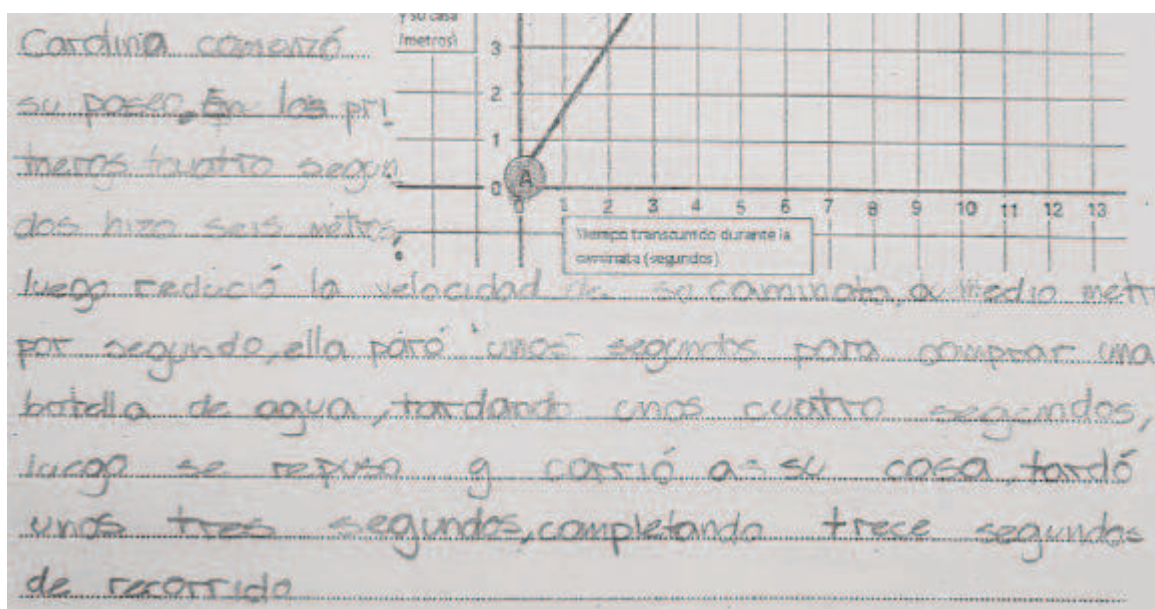 Carolina comenzó
su paseo, En los pri_
meros cuatro segun_
dos hizo seis metros,
luego redució la velocidad de su caminata, a medio metr
por segundo, ella paró unos segundos para comprar una
botella de agua, tardando unos cuatro segundos,
luego se repuso y corrió a su casa, tardó
unos tres segundos, completando trece segundos
de recorrido
y su casa
(metros)
3
2
1
0
A
0 1 2 3 4 5 6 7 8 9 10 11 12 13
Tiempo transcurrido durante la
caminata (segundos)